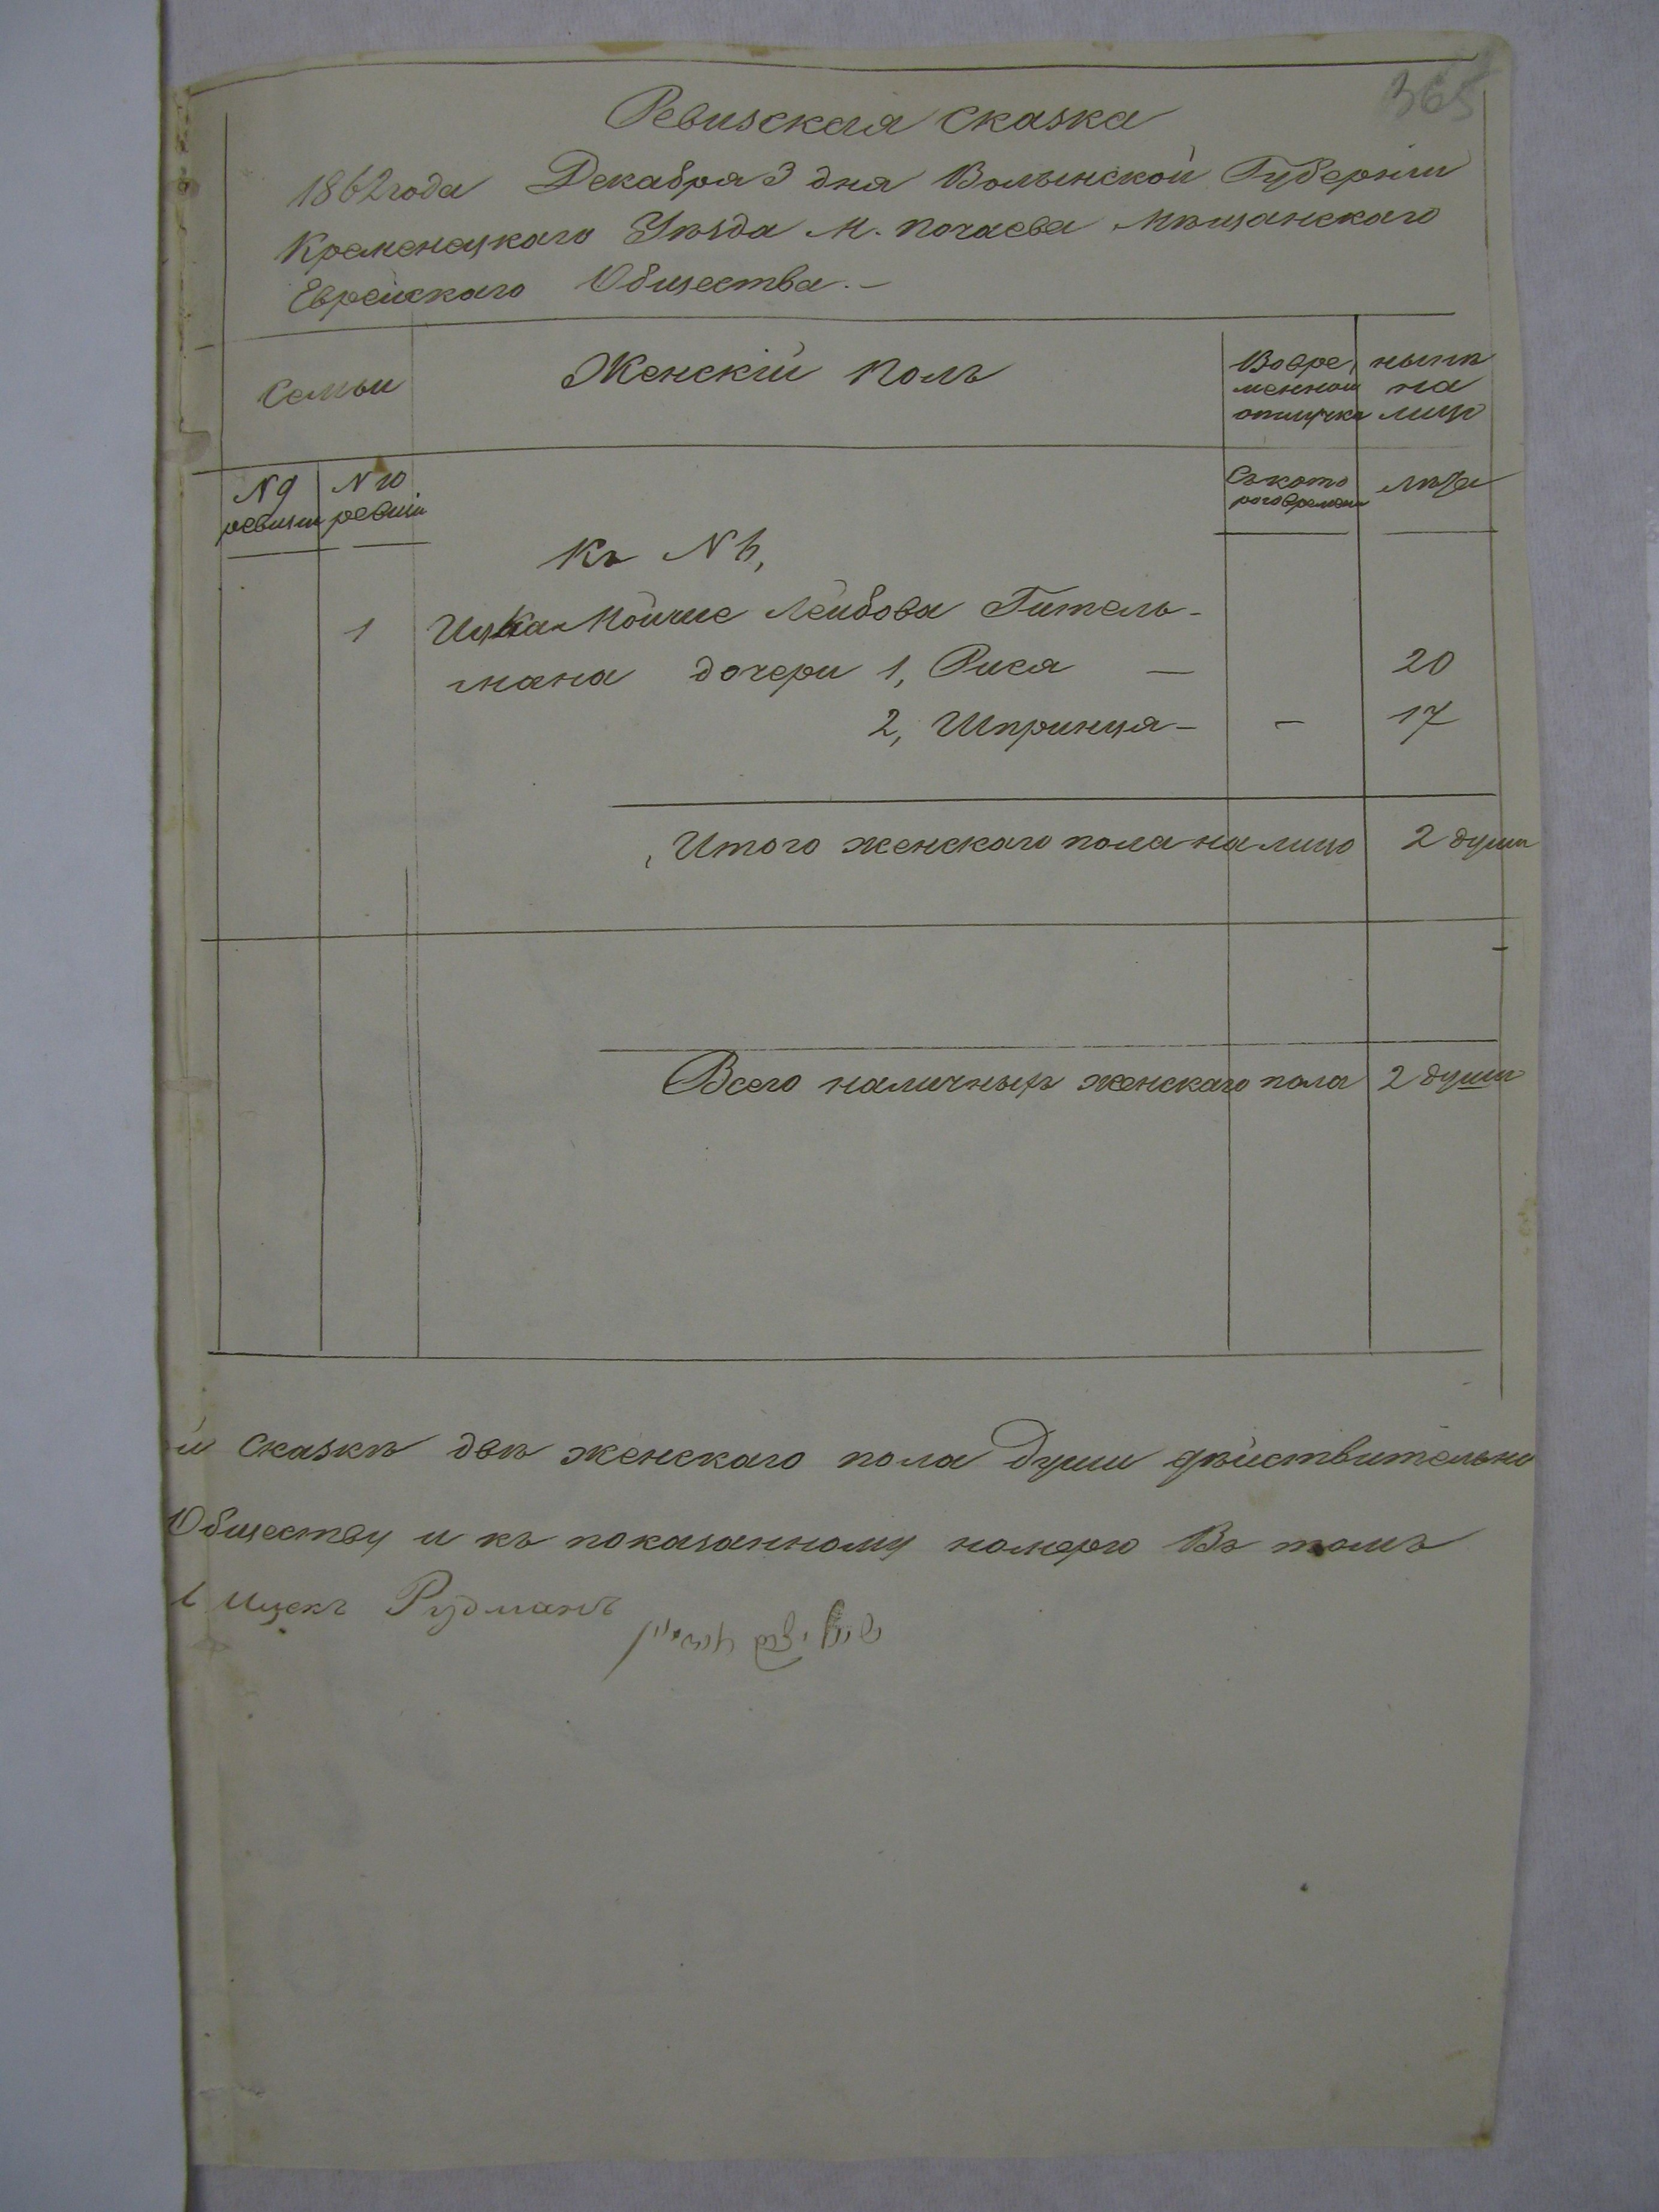 365
Ревизская сказка
1862 года Декабря 3 дня Волынской Губернiи
Кременецкаго Уѣзда М. Почаева Мѣщанскаго
Еврейскаго Общества.-
Семьи
Женскiй Полъ
Вовре, менной отлучкѣ
нынѣ на лицо
N 9 ревизiи
N 10 ревизiи
Съ кото рого времени
лѣта
Къ N
1 Ицка-Мойше Лейбова Гитель-
мана дочери 1, Рися — 20
2, Шпринця - - 17
Итого женскаго пола на лицо 2 души
Всего наличныхъ женскаго пола 2 души
й сказкѣ двѣ женскаго пола души дѣйствительно
Обществу и къ показанному номеру Въ томъ
Ицекъ Рудманъ